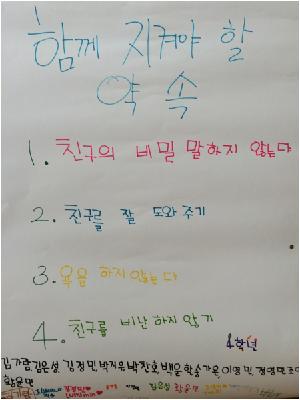 함께 지켜야 할
약속
1. 친구의 비밀 말하지 않는다
2. 친구를 잘 도와 주기
3. 욕을 하지 않는다
4. 친구를 비난 하지 않기
4학년
김가람 김은성 김정민 박지유 박찬호 백윤 학송가온 이영민 정영민 조